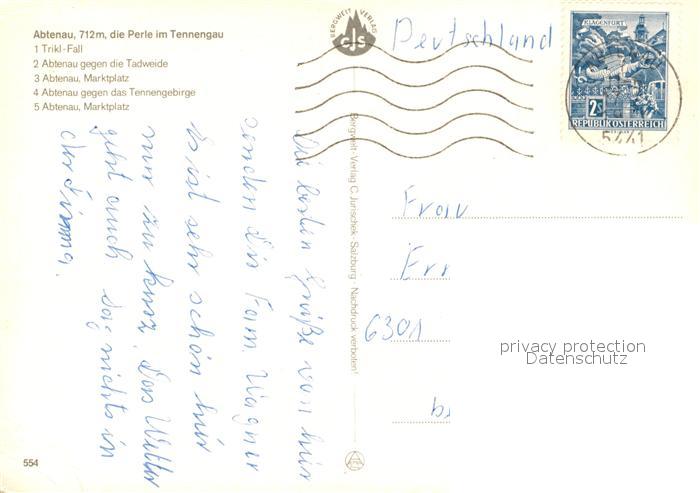 Abtenau, 712m, die Perle im Tennengau
1 Trikl-Fall
2 Abtenau gegen die Tadweide
3 Abtenau, Marktplatz
4 Abtenau gegen das Tennengebirge
5 Abtenau, Marktplatz
BERGWELT VERLAG
CJS
Deutschland
KLAGENFURT
2S
REPUBLIK ÖSTERREICH
5441
Die besten Grüße von hier
senden die Fam. Wagner
Es ist sehr schön hier
nur zu kurz. Das Wetter
geht auch das nichts in
der Firma.
Bergwelt-Verlag C. Jurischek · Salzburg · Nachdruck verboten!
Frau
Err
6301
bs
privacy protection
Datenschutz
554